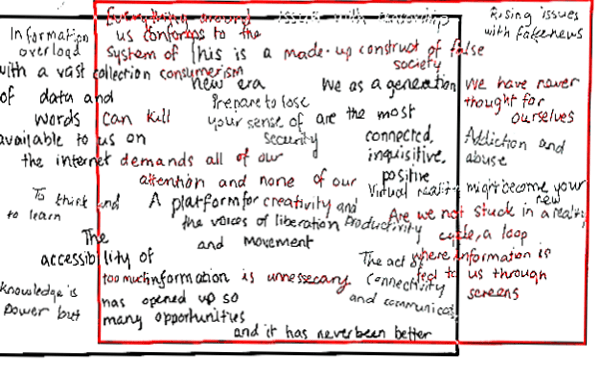 Everything around issues with censorship Rising issues
Information us conforms to the with fake news
overload system of This is a made-up construct of false
with a vast collection consumerism society
new era We as a generation We have never
of data and Prepare to lose thought for
words can kill your sense of are the most ourselves
available to us on security connected, Addiction and
the internet demands all of our inquisitive, abuse
attention and none of our positive
Virtual reality might become your
To think and A platform for creativity and new
to learn the voices of liberation Productivity Are we not stuck in a reality
The and movement cycle, a loop
accessibility of The act of where information is
too much information is unnessecary. Connectivity fed to us through
knowledge is has opened up so and communicat screens
power but many opportunities
and it has never been better